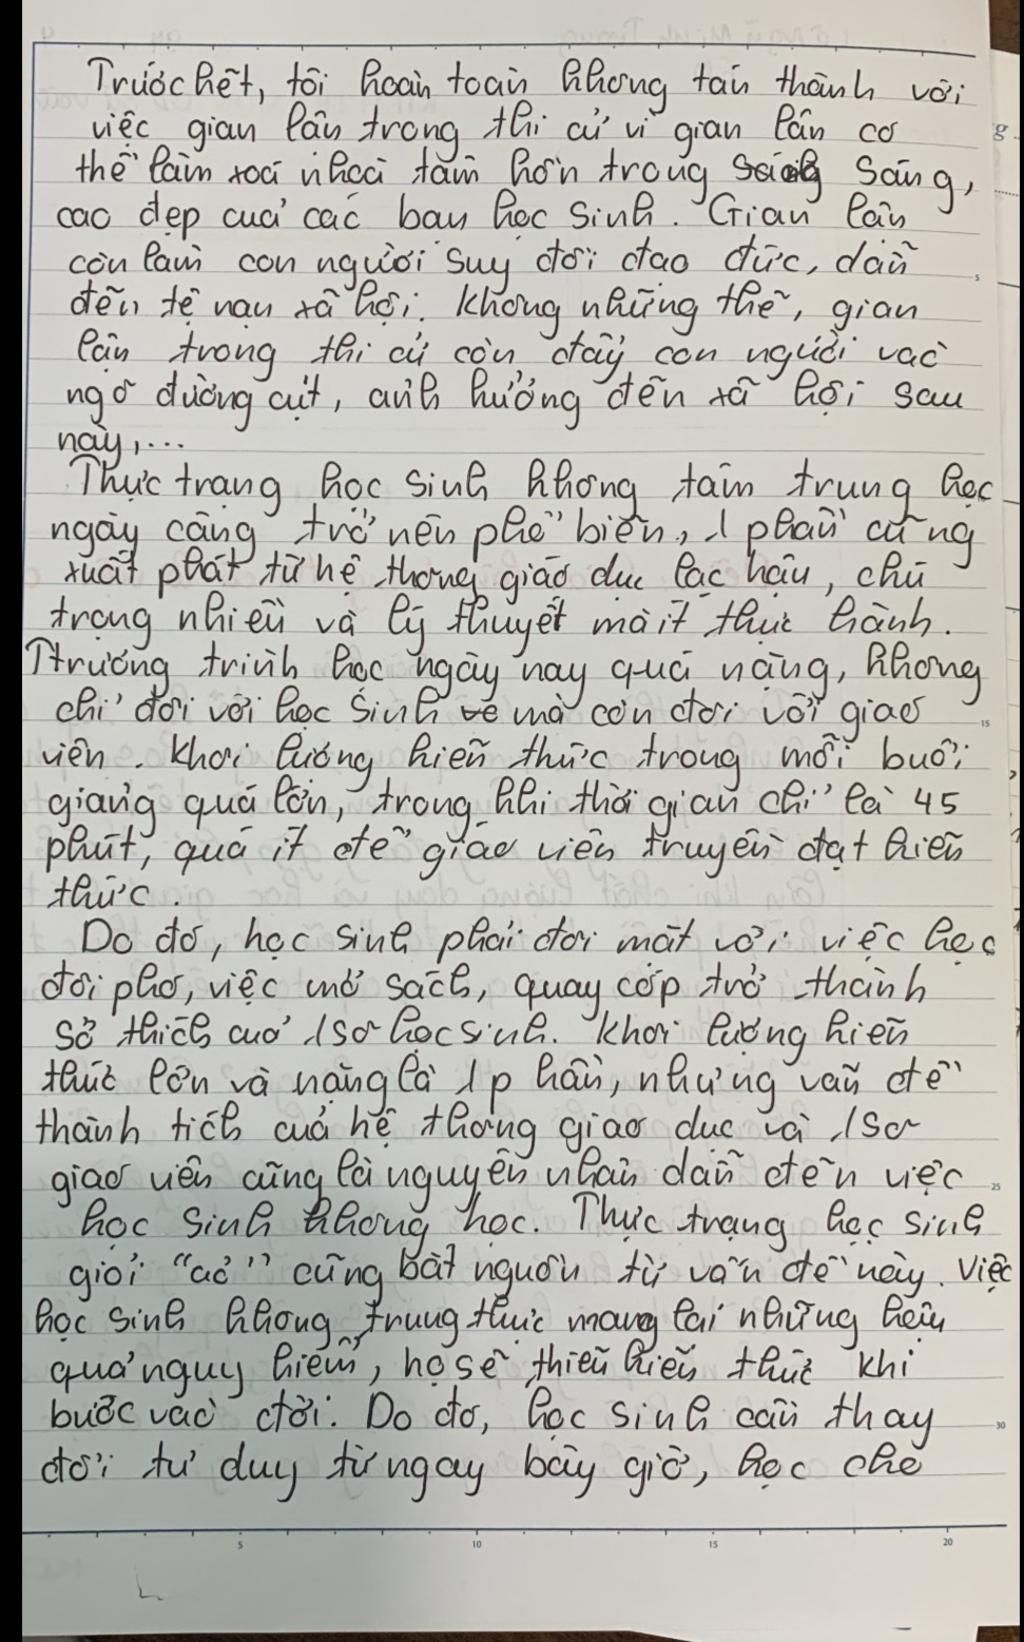 Trước hết, tôi hoàn toàn không tán thành với
việc gian lận trong thi cử vì gian lận có
thể làm xoá nhoà tâm hồn trong sáng,
cao đẹp của các bạn học sinh. Gian lận
còn làm con người suy đồi đạo đức, dẫn
đến tệ nạn xã hội. Không những thế, gian
lận trong thi cử còn đẩy con người vào
ngõ đường cụt, ảnh hưởng đến xã hội sau
này,...
Thực trạng học sinh không tâm trung học
ngày càng trở nên phổ biến, 1 phần cũng
xuất phát từ hệ thống giáo dục lạc hậu, chú
trọng nhiều và lý thuyết mà ít thực hành.
Trương trình học ngày nay quá nặng, không
chỉ đối với học sinh mà còn đối với giáo
viên. Khối lượng kiến thức trong mỗi buổi
giảng quá lớn, trong khi thời gian chỉ là 45
phút, quá ít để giáo viên truyền đạt kiến
thức.
Do đó, học sinh phải đối mặt với việc học
đối phó, việc mở sách, quay cóp trở thành
sở thích của 1 số học sinh. Khối lượng kiến
thức lớn và nặng là 1 phần, nhưng vấn đề
thành tích của hệ thống giáo dục và 1 số
giáo viên cũng là nguyên nhân dẫn đến việc
học sinh không học. Thực trạng học sinh
giỏi "ảo" cũng bắt nguồn từ vấn đề này. Việc
học sinh không trung thực mang lại những hậu
quả nguy hiểm, họ sẽ thiếu kiến thức khi
bước vào đời. Do đó, học sinh cần thay
đổi tư duy từ ngay bây giờ, học cho
5
15
25
30
5
10
15
20